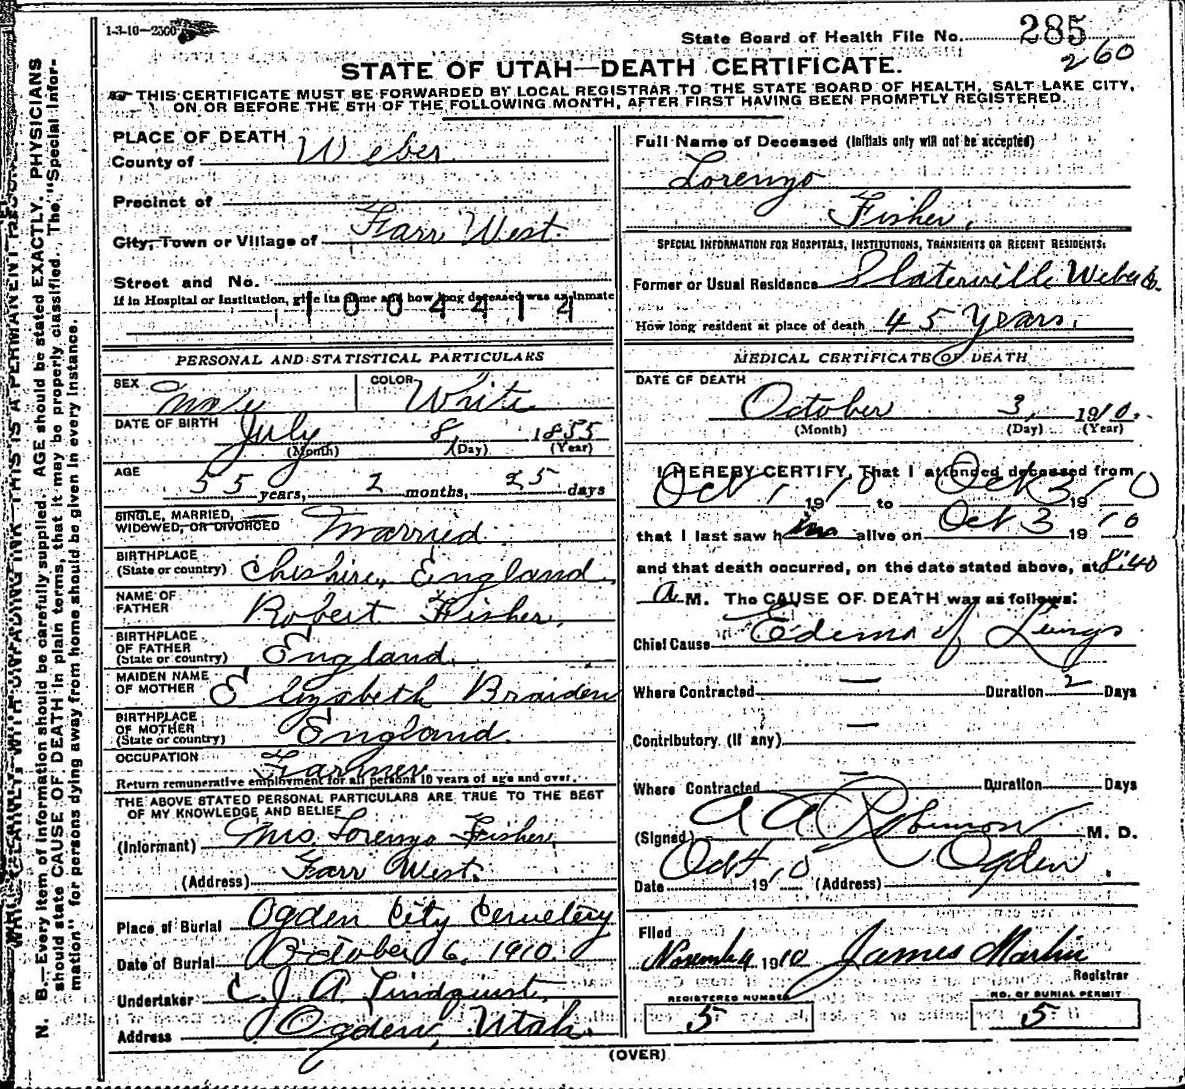 1-3-10—2500
State Board of Health File No. 285
260
STATE OF UTAH—DEATH CERTIFICATE.
THIS CERTIFICATE MUST BE FORWARDED BY LOCAL REGISTRAR TO THE STATE BOARD OF HEALTH, SALT LAKE CITY,
ON OR BEFORE THE 5TH OF THE FOLLOWING MONTH, AFTER FIRST HAVING BEEN PROMPTLY REGISTERED.
PLACE OF DEATH
County of Weber
Precinct of
City, Town or Village of Farr West
Street and No.
If in Hospital or Institution, give its name and how long deceased was an inmate
1004414
PERSONAL AND STATISTICAL PARTICULARS
SEX Male COLOR White
DATE OF BIRTH July 8 1855
(Month) (Day) (Year)
AGE
55 years, 2 months, 25 days
SINGLE, MARRIED,
WIDOWED, OR DIVORCED Married
BIRTHPLACE
(State or country) Cheshire, England
NAME OF
FATHER Robert Fisher,
BIRTHPLACE
OF FATHER
(State or country) England.
MAIDEN NAME
OF MOTHER Elizabeth Braiden
BIRTHPLACE
OF MOTHER
(State or country) England.
OCCUPATION Farmer
Return remunerative employment for all persons 10 years of age and over.
THE ABOVE STATED PERSONAL PARTICULARS ARE TRUE TO THE BEST
OF MY KNOWLEDGE AND BELIEF
(Informant) Mrs Lorenzo Fisher,
(Address) Farr West.
Place of Burial Ogden City Cemetery
Date of Burial October 6, 1910.
Undertaker C. J. A. Lindquist,
Address Ogden, Utah.
Full Name of Deceased (Initials only will not be accepted)
Lorenzo
Fisher,
SPECIAL INFORMATION FOR HOSPITALS, INSTITUTIONS, TRANSIENTS OR RECENT RESIDENTS:
Former or Usual Residence Slaterville Weber Co.
How long resident at place of death 45 Years.
MEDICAL CERTIFICATE OF DEATH
DATE OF DEATH
October 3, 1910.
(Month) (Day) (Year)
I HEREBY CERTIFY, That I attended deceased from
Oct 1, 1910 to Oct 3 1910
that I last saw him alive on Oct 3 1910
and that death occurred, on the date stated above, at 8:40
a M. The CAUSE OF DEATH was as follows:
Chief Cause Edema of Lungs
Where Contracted — Duration 2 Days
Contributory (If any) —
Where Contracted — Duration Days
(Signed) A A Robinson M. D.
Date Oct 4 1910 (Address) Ogden.
Filed
Novem 4 1910 James Martin
Registrar
REGISTERED NUMBER
5
NO. OF BURIAL PERMIT
5
(OVER)
N. B.—Every item of information should be carefully supplied. AGE should be stated EXACTLY. PHYSICIANS
should state CAUSE OF DEATH in plain terms, that it may be properly classified. The "Special Infor-
mation" for persons dying away from home should be given in every instance.